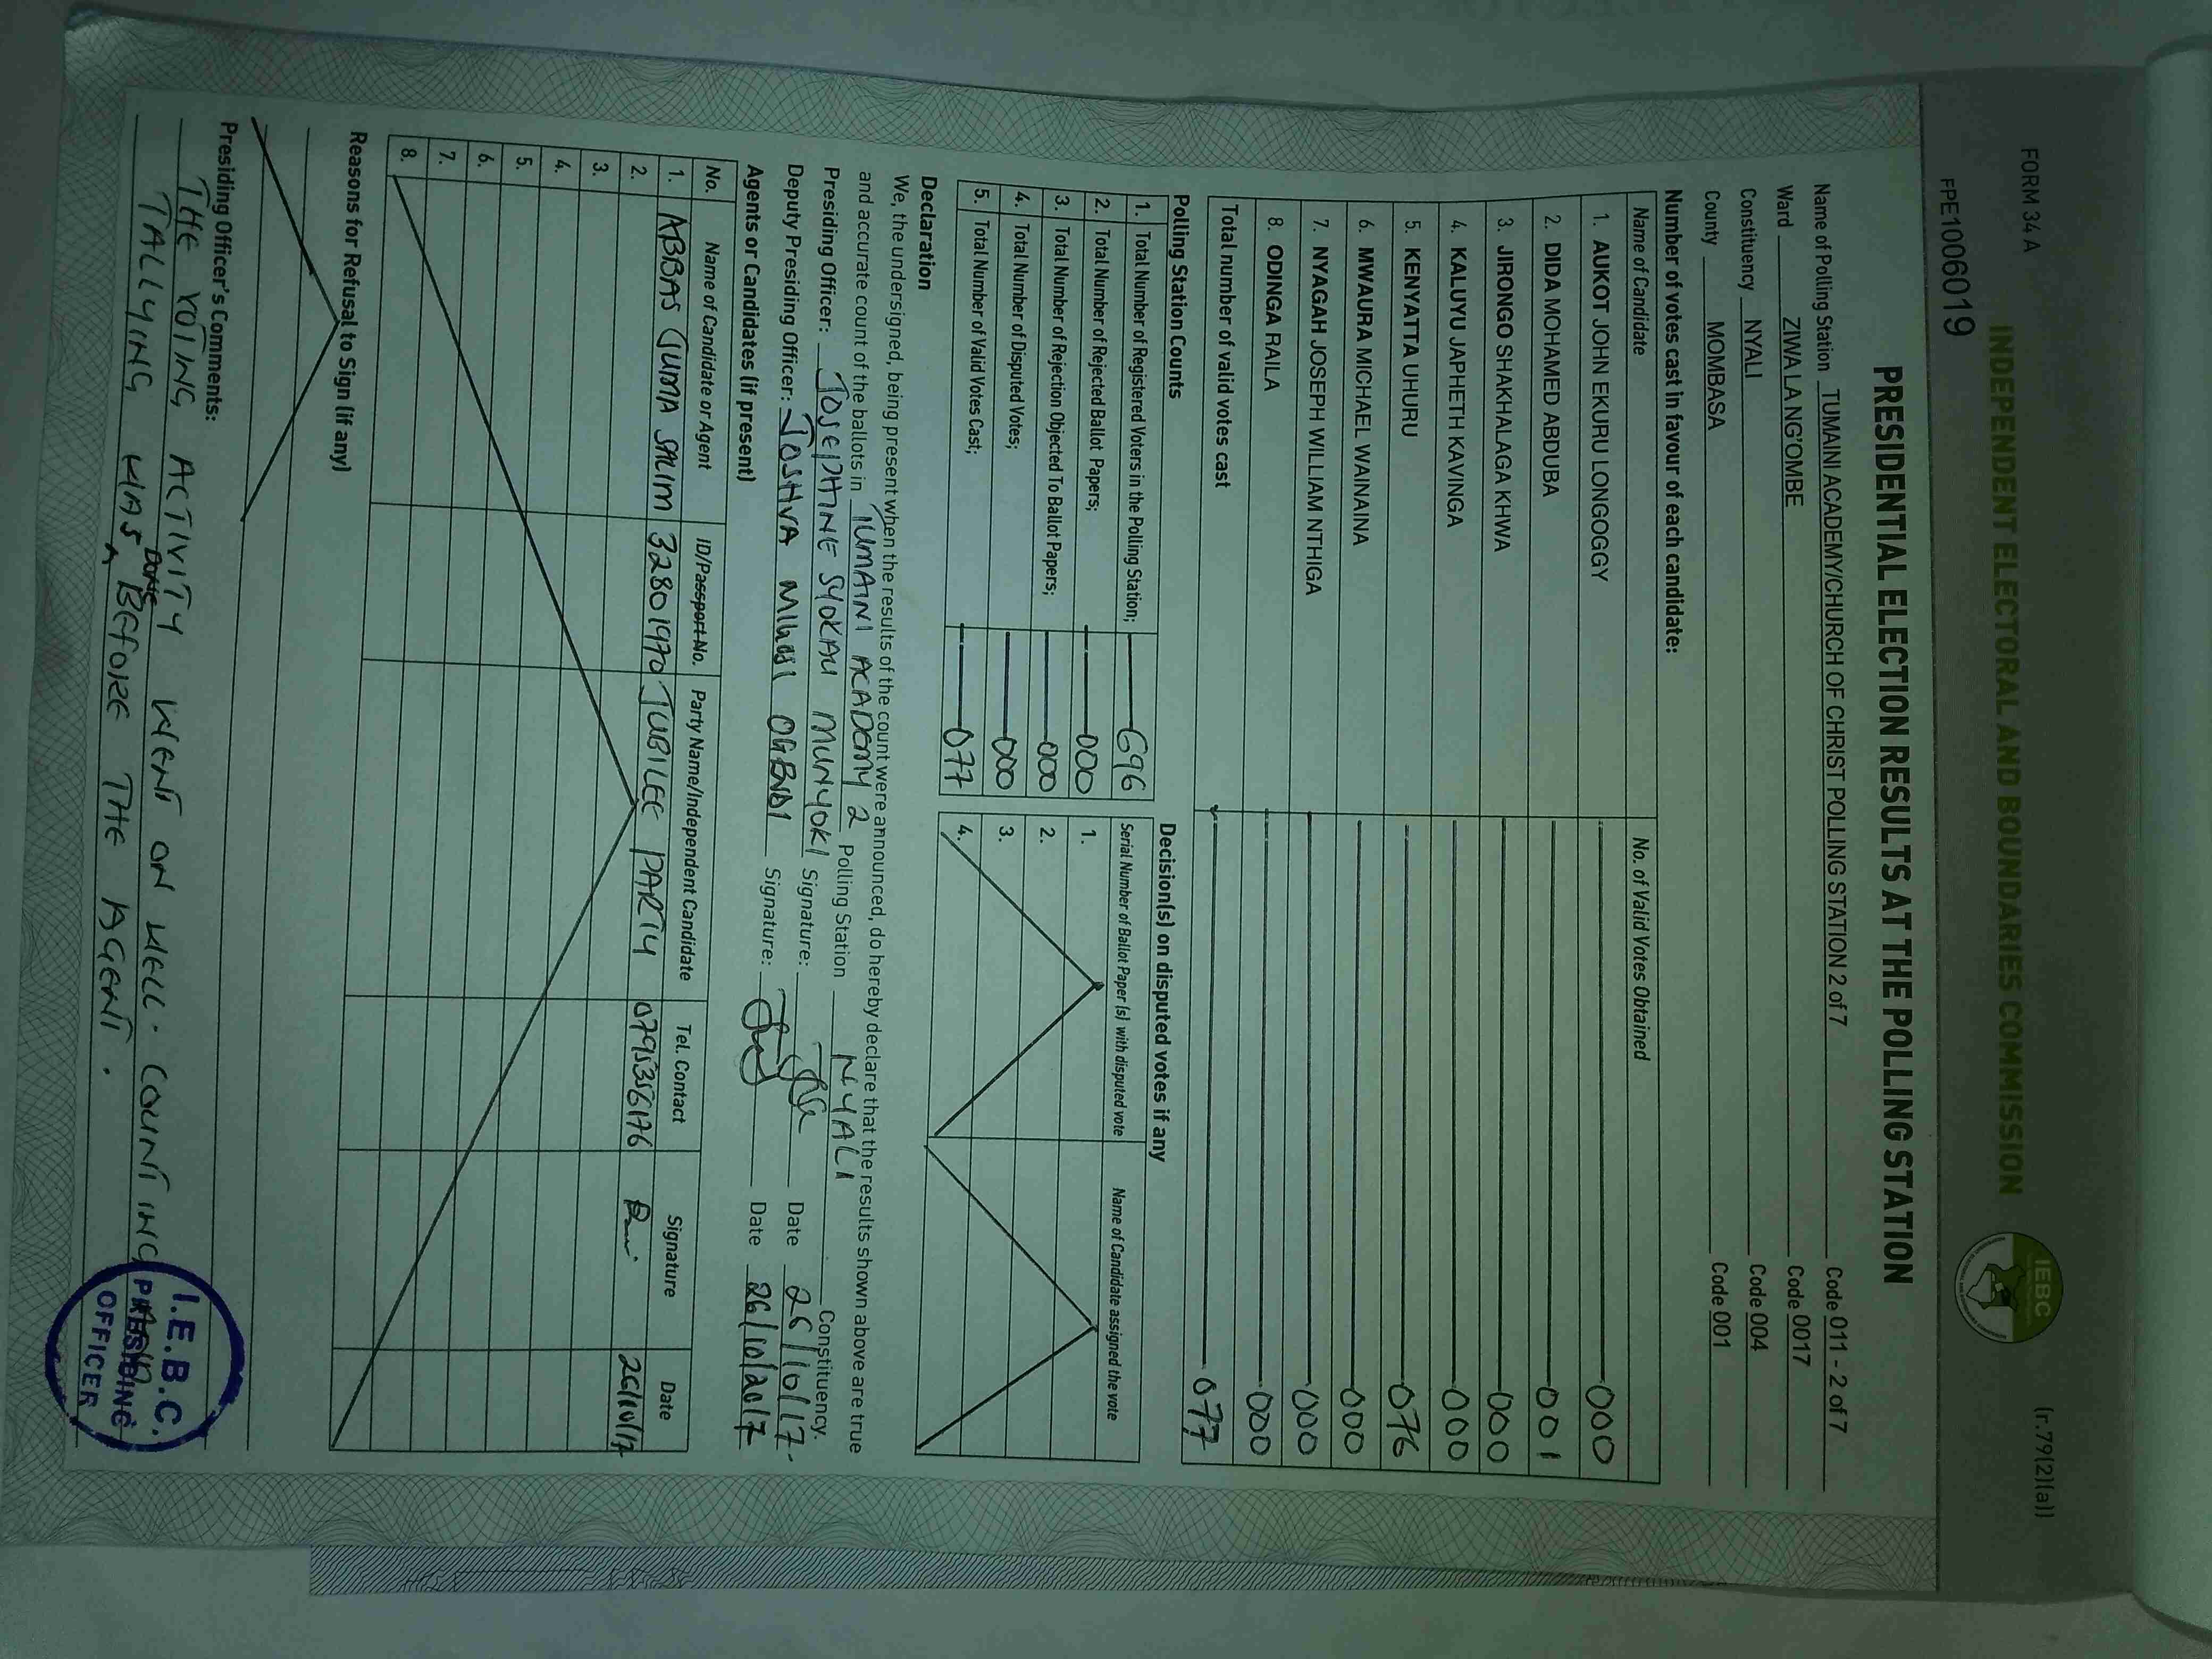 FORM 34 A
(r.79(2)(a))
INDEPENDENT ELECTORAL AND BOUNDARIES COMMISSION
IEBC
FPE1006019
PRESIDENTIAL ELECTION RESULTS AT THE POLLING STATION
Name of Polling Station TUMAINI ACADEMY/CHURCH OF CHRIST POLLING STATION 2 of 7 Code 011 - 2 of 7
Ward ZIWA LA NG'OMBE Code 0017
Constituency NYALI Code 004
County MOMBASA Code 001
Number of votes cast in favour of each candidate:
Name of Candidate No. of Valid Votes Obtained
1. AUKOT JOHN EKURU LONGOGGY 000
2. DIDA MOHAMED ABDUBA 001
3. JIRONGO SHAKHALAGA KHWA 000
4. KALUYU JAPHETH KAVINGA 000
5. KENYATTA UHURU 076
6. MWAURA MICHAEL WAINAINA 000
7. NYAGAH JOSEPH WILLIAM NTHIGA 000
8. ODINGA RAILA 000
Total number of valid votes cast 077
Polling Station Counts
1. Total Number of Registered Voters in the Polling Station; 696
2. Total Number of Rejected Ballot Papers; 000
3. Total Number of Rejection Objected To Ballot Papers; 000
4. Total Number of Disputed Votes; 000
5. Total Number of Valid Votes Cast; 077
Decision(s) on disputed votes if any
Serial Number of Ballot Paper (s) with disputed vote Name of Candidate assigned the vote
1.
2.
3.
4.
Declaration
We, the undersigned, being present when the results of the count were announced, do hereby declare that the results shown above are true
and accurate count of the ballots in TUMAINI ACADEMY 2 Polling Station NYALI Constituency.
Presiding Officer: JOSEPHINE SYOKAU MUNYOKI Signature: Date 26/10/17.
Deputy Presiding Officer: JOSHVA OGENDI Signature: Date 26/10/2017
Agents or Candidates (if present)
No. Name of Candidate or Agent ID/Passport No. Party Name/Independent Candidate Tel. Contact Signature Date
1. ABBAS JUMA SALIM 32801970 JUBILEE PARTY 0795356176 26/10/17
2.
3.
4.
5.
6.
7.
8.
Reasons for Refusal to Sign (if any)
Presiding Officer's Comments:
THE VOTING ACTIVITY WENT ON WELL. COUNTING AND
TALLYING WAS DONE BEFORE THE AGENT.
I.E.B.C.
PRESIDING
OFFICER